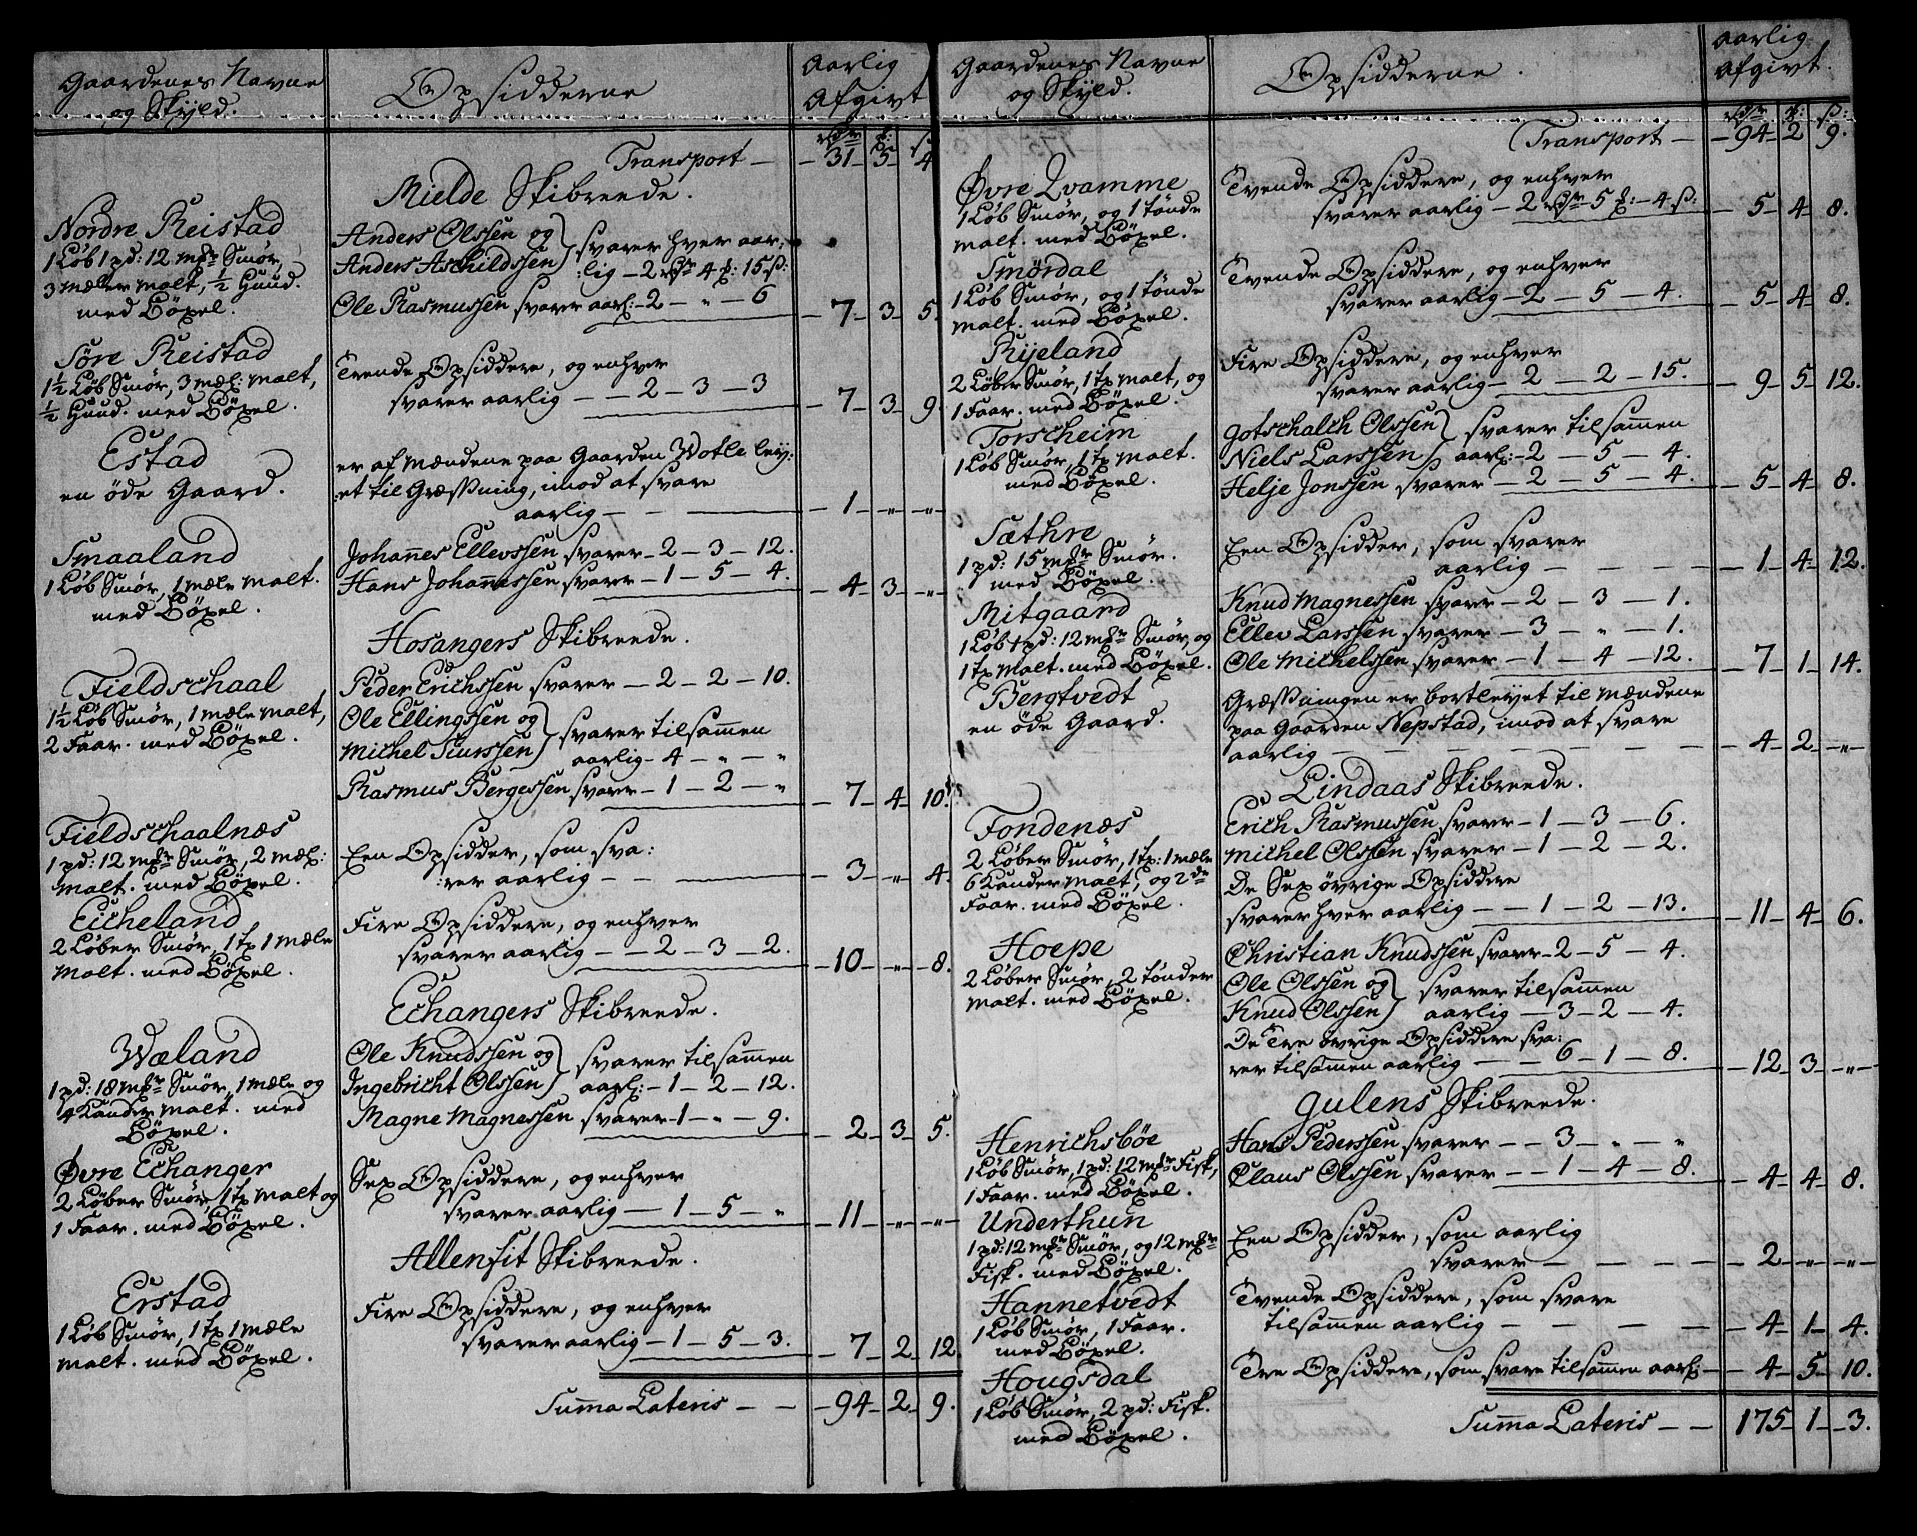 Gaardenes Navne
og Skyld.
Opsidderne
Aarlig
Afgivt
rdr m: s
Transport — 31 — 5 4
Mielde Skibreede.
Nordre Reistad
1 Løb 1 pd: 12 mkr Smør,
3 mæler malt, ½ Huud.
med Bøxel.
Anders Olssen og
Anders Aschildssen } svarer hver aar:
:lig — 2 rdr 4 m: 15 s:
Ole Rasmussen svarer aarl: — 2 — " — 6
— 7 — 3 — 5.
Søre Reistad
1½ Løb Smør, 3 mæl: malt,
½ Huud. med Bøxel.
Tvende Opsiddere, og enhver
svarer aarlig — — 2 — 3 — 3
— 7 — 3 — 9.
Estad
en øde Gaard.
er af Mændene paa Gaarden Wotle ley:
:et til Græssning, imod at svare
aarlig — — — 1 — " — "
Smaaland
1 Løb Smør, 1 mæle malt.
med Bøxel.
Johannes Ellevssen svarer — 2 — 3 — 12.
Hans Johannessen svarer — 1 — 5 — 4.
— 4 — 3 — "
Hosangers Skibreede.
Fieldschaal
1½ Løb Smør, 1 mæle malt,
2 Faar. med Bøxel.
Peder Erichssen svarer — 2 — 2 — 10.
Ole Ellingssen og
Michel Siurssen } svarer tilsammen
aarlig — 4 — " — "
Rasmus Bergessen svarer — 1 — 2 — "
— 7 — 4 — 10.
Fieldschaalnæs
1 pd: 12 mkr Smør, 2 mæl:
malt. med Bøxel.
Een Opsidder, som sva:
:rer aarlig — — — 3 — " — 4.
Eicheland
2 Løber Smør, 1 tx 1 mæle
malt. med Bøxel.
Fire Opsiddere, og enhver
svarer aarlig — — 2 — 3 — 2.
— 10 — " — 8.
Echangers Skibreede.
Wæland
1 pd: 18 mkr Smør, 1 mæle og
4 Kander malt. med
Bøxel.
Ole Knudssen og
Ingebricht Olssen } svarer tilsammen
aarl: — 1 — 2 — 12.
Magne Magnessen svarer — 1 — " — 9.
— 2 — 3 — 5.
Øvre Echanger
2 Løber Smør, 1 tx malt og
1 Faar. med Bøxel.
Sex Opsiddere, og enhver
svarer aarlig — 1 — 5 — "
— 11 — " — "
Allenfit Skibreede.
Erstad
1 Løb Smør, 1 tx 1 mæle
malt. med Bøxel.
Fire Opsiddere, og enhver
svarer aarlig — 1 — 5 — 3.
— 7 — 2 — 12
Summa Lateris — — 94 — 2 — 9.
Gaardenes Navne
og Skyld.
Opsidderne.
Aarlig
Afgivt.
rdr m: s:
Transport — 94 — 2 9.
Øvre Qvamme
1 Løb Smør, og 1 tønde
malt. med Bøxel.
Tvende Opsiddere, og enhver
svarer aarlig — 2 rdr 5 m: — 4 s:
— 5 — 4 — 8.
Smørdal
1 Løb Smør, og 1 tønde
malt. med Bøxel.
Tvende Opsiddere, og enhver
svarer aarlig — 2 — 5 — 4.
— 5 — 4 — 8.
Ryeland
2 Løber Smør, 1 tx malt, og
1 Faar. med Bøxel.
Fire Opsiddere, og enhver
svarer aarlig — 2 — 2 — 15.
— 9 — 5 — 12.
Torscheim
1 Løb Smør, 1 tx malt.
med Bøxel.
Gotschalch Olssen
Niels Larssen } svarer tilsammen
aarl: — 2 — 5 — 4.
Helje Jonssen svarer — 2 — 5 — 4.
— 5 — 4 — 8.
Sæthre
1 pd: 15 mkr Smør.
med Bøxel.
Een Opsidder, som svarer
aarlig — — — — 1 — 4 — 12.
Mitgaard
1 Løb 1 pd: 12 mkr Smør, og
1 tx malt. med Bøxel.
Knud Magnessen svarer — 2 — 3 — 1.
Ellev Larssen svarer — 3 — " — 1.
Ole Michelssen svarer — 1 — 4 — 12.
— 7 — 1 — 14.
Bergtvedt
en øde Gaard.
Græssningen er bortleyet til Mændene
paa Gaarden Nepstad, imod at svare
aarlig — — — — — 4 — 2 — "
Lindaas Skibreede.
Fondenæs
2 Løber Smør, 1 tx: 1 mæle
6 Kander malt, og 2 de
Faar. med Bøxel.
Erich Rasmussen svarer — 1 — 3 — 6.
Michel Olssen svarer — 1 — 2 — 2.
De Sex øvrige Opsiddere
svarer hver aarlig — — 1 — 2 — 13.
— 11 — 4 — 6.
Hoepe
2 Løber Smør, 2 tønder
malt. med Bøxel.
Christian Knudssen svarer — 2 — 5 — 4.
Ole Olssen og
Knud Olssen } svarer tilsammen
aarlig — 3 — 2 — 4.
De Tre øvrige Opsiddere sva:
rer tilsammen aarlig — — 6 — 1 — 8.
— 12 — 3 — "
Gulens Skibreede.
Henrichsbøe
1 Løb Smør, 1 pd: 12 mkr Fisk,
1 Faar. med Bøxel.
Hans Pederssen svarer — — 3 — " — "
Claus Olssen svarer — — 1 — 4 — 8.
— 4 — 4 — 8.
Underthun
1 pd: 12 mkr Smør, og 12 mkr
Fisk. med Bøxel.
Een Opsidder, som aarlig
svarer — — — — 2 — " — "
Hannetvedt
1 Løb Smør, 1 Faar.
med Bøxel.
Tvende Opsiddere, som svare
tilsammen aarlig — — — — 4 — 1 — 4.
Hougsdal
1 Løb Smør, 2 pd: Fisk.
med Bøxel.
Tre Opsiddere, som svare tilsammen aarl: — 4 — 5 — 10.
Summa Lateris — — 175 — 1 — 3.